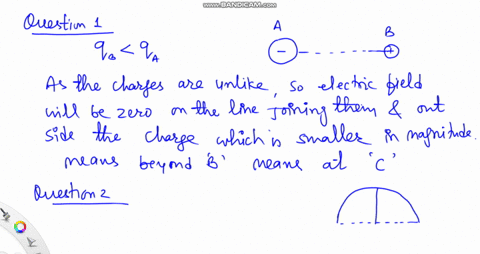 www.BANDICAM.com
Question 1
q_B < q_A
A
B
-
+
As the charges are unlike, so electric field
will be zero on the line joining them & out
side the charge which is smaller in magnitude.
means beyond 'B' means at 'C'
Question 2